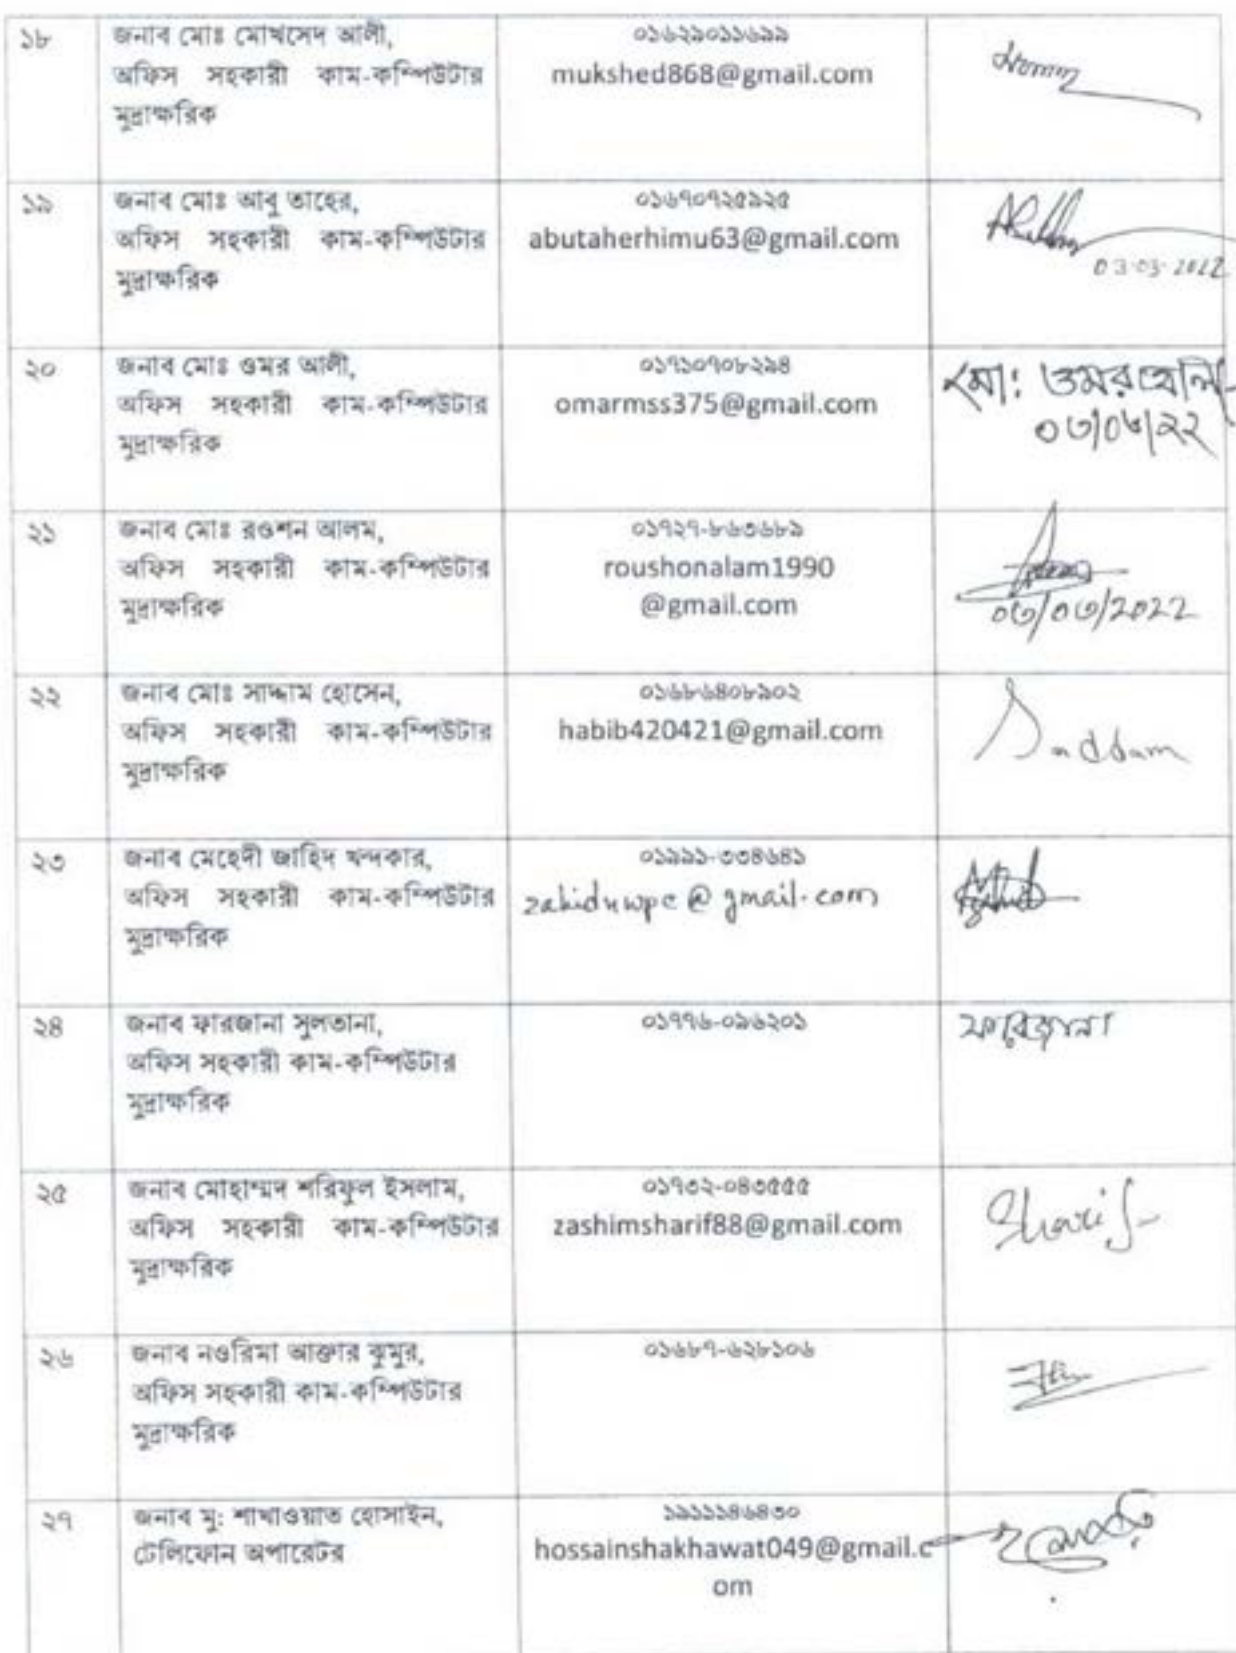 ১৮
জনাব মোঃ মোখসেদ আলী,
অফিস সহকারী কাম-কম্পিউটার
মুদ্রাক্ষরিক
০১৬২৯০১১৬৯৯
mukshed868@gmail.com
১৯
জনাব মোঃ আবু তাহের,
অফিস সহকারী কাম-কম্পিউটার
মুদ্রাক্ষরিক
০১৬৭০৭২৫৯২৫
abutaherhimu63@gmail.com
03-03-2022
২০
জনাব মোঃ ওমর আলী,
অফিস সহকারী কাম-কম্পিউটার
মুদ্রাক্ষরিক
০১৭১০৭০৮২৯৪
omarmss375@gmail.com
মো: ওমর আলি
০৩/০৩/২২
২১
জনাব মোঃ রওশন আলম,
অফিস সহকারী কাম-কম্পিউটার
মুদ্রাক্ষরিক
০১৭২৭-৮৬৩৬৮৯
roushonalam1990
@gmail.com
০৩/০৩/2022
২২
জনাব মোঃ সাদ্দাম হোসেন,
অফিস সহকারী কাম-কম্পিউটার
মুদ্রাক্ষরিক
০১৬৮৬৪০৮৯০২
habib420421@gmail.com
Saddam
২৩
জনাব মেহেদী জাহিদ খন্দকার,
অফিস সহকারী কাম-কম্পিউটার
মুদ্রাক্ষরিক
০১৯৯১-৩৩৪৬৪১
zahiduwpc@gmail.com
২৪
জনাব ফারজানা সুলতানা,
অফিস সহকারী কাম-কম্পিউটার
মুদ্রাক্ষরিক
০১৭৭৬-০৯৬২০১
ফারজানা
২৫
জনাব মোহাম্মদ শরিফুল ইসলাম,
অফিস সহকারী কাম-কম্পিউটার
মুদ্রাক্ষরিক
০১৭৩২-০৪৩৫৫৫
zashimsharif88@gmail.com
Sharif
২৬
জনাব নওরিমা আক্তার ঝুমুর,
অফিস সহকারী কাম-কম্পিউটার
মুদ্রাক্ষরিক
০১৬৮৭-৬২৮১০৬
২৭
জনাব মু: শাখাওয়াত হোসাইন,
টেলিফোন অপারেটর
১৯১১১৪৬৪৩০
hossainshakhawat049@gmail.c
om